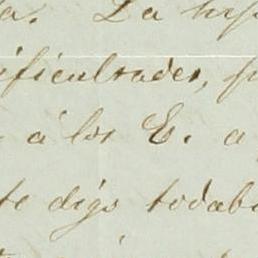 a. La
ificultades,
á los E. a
te digo todab